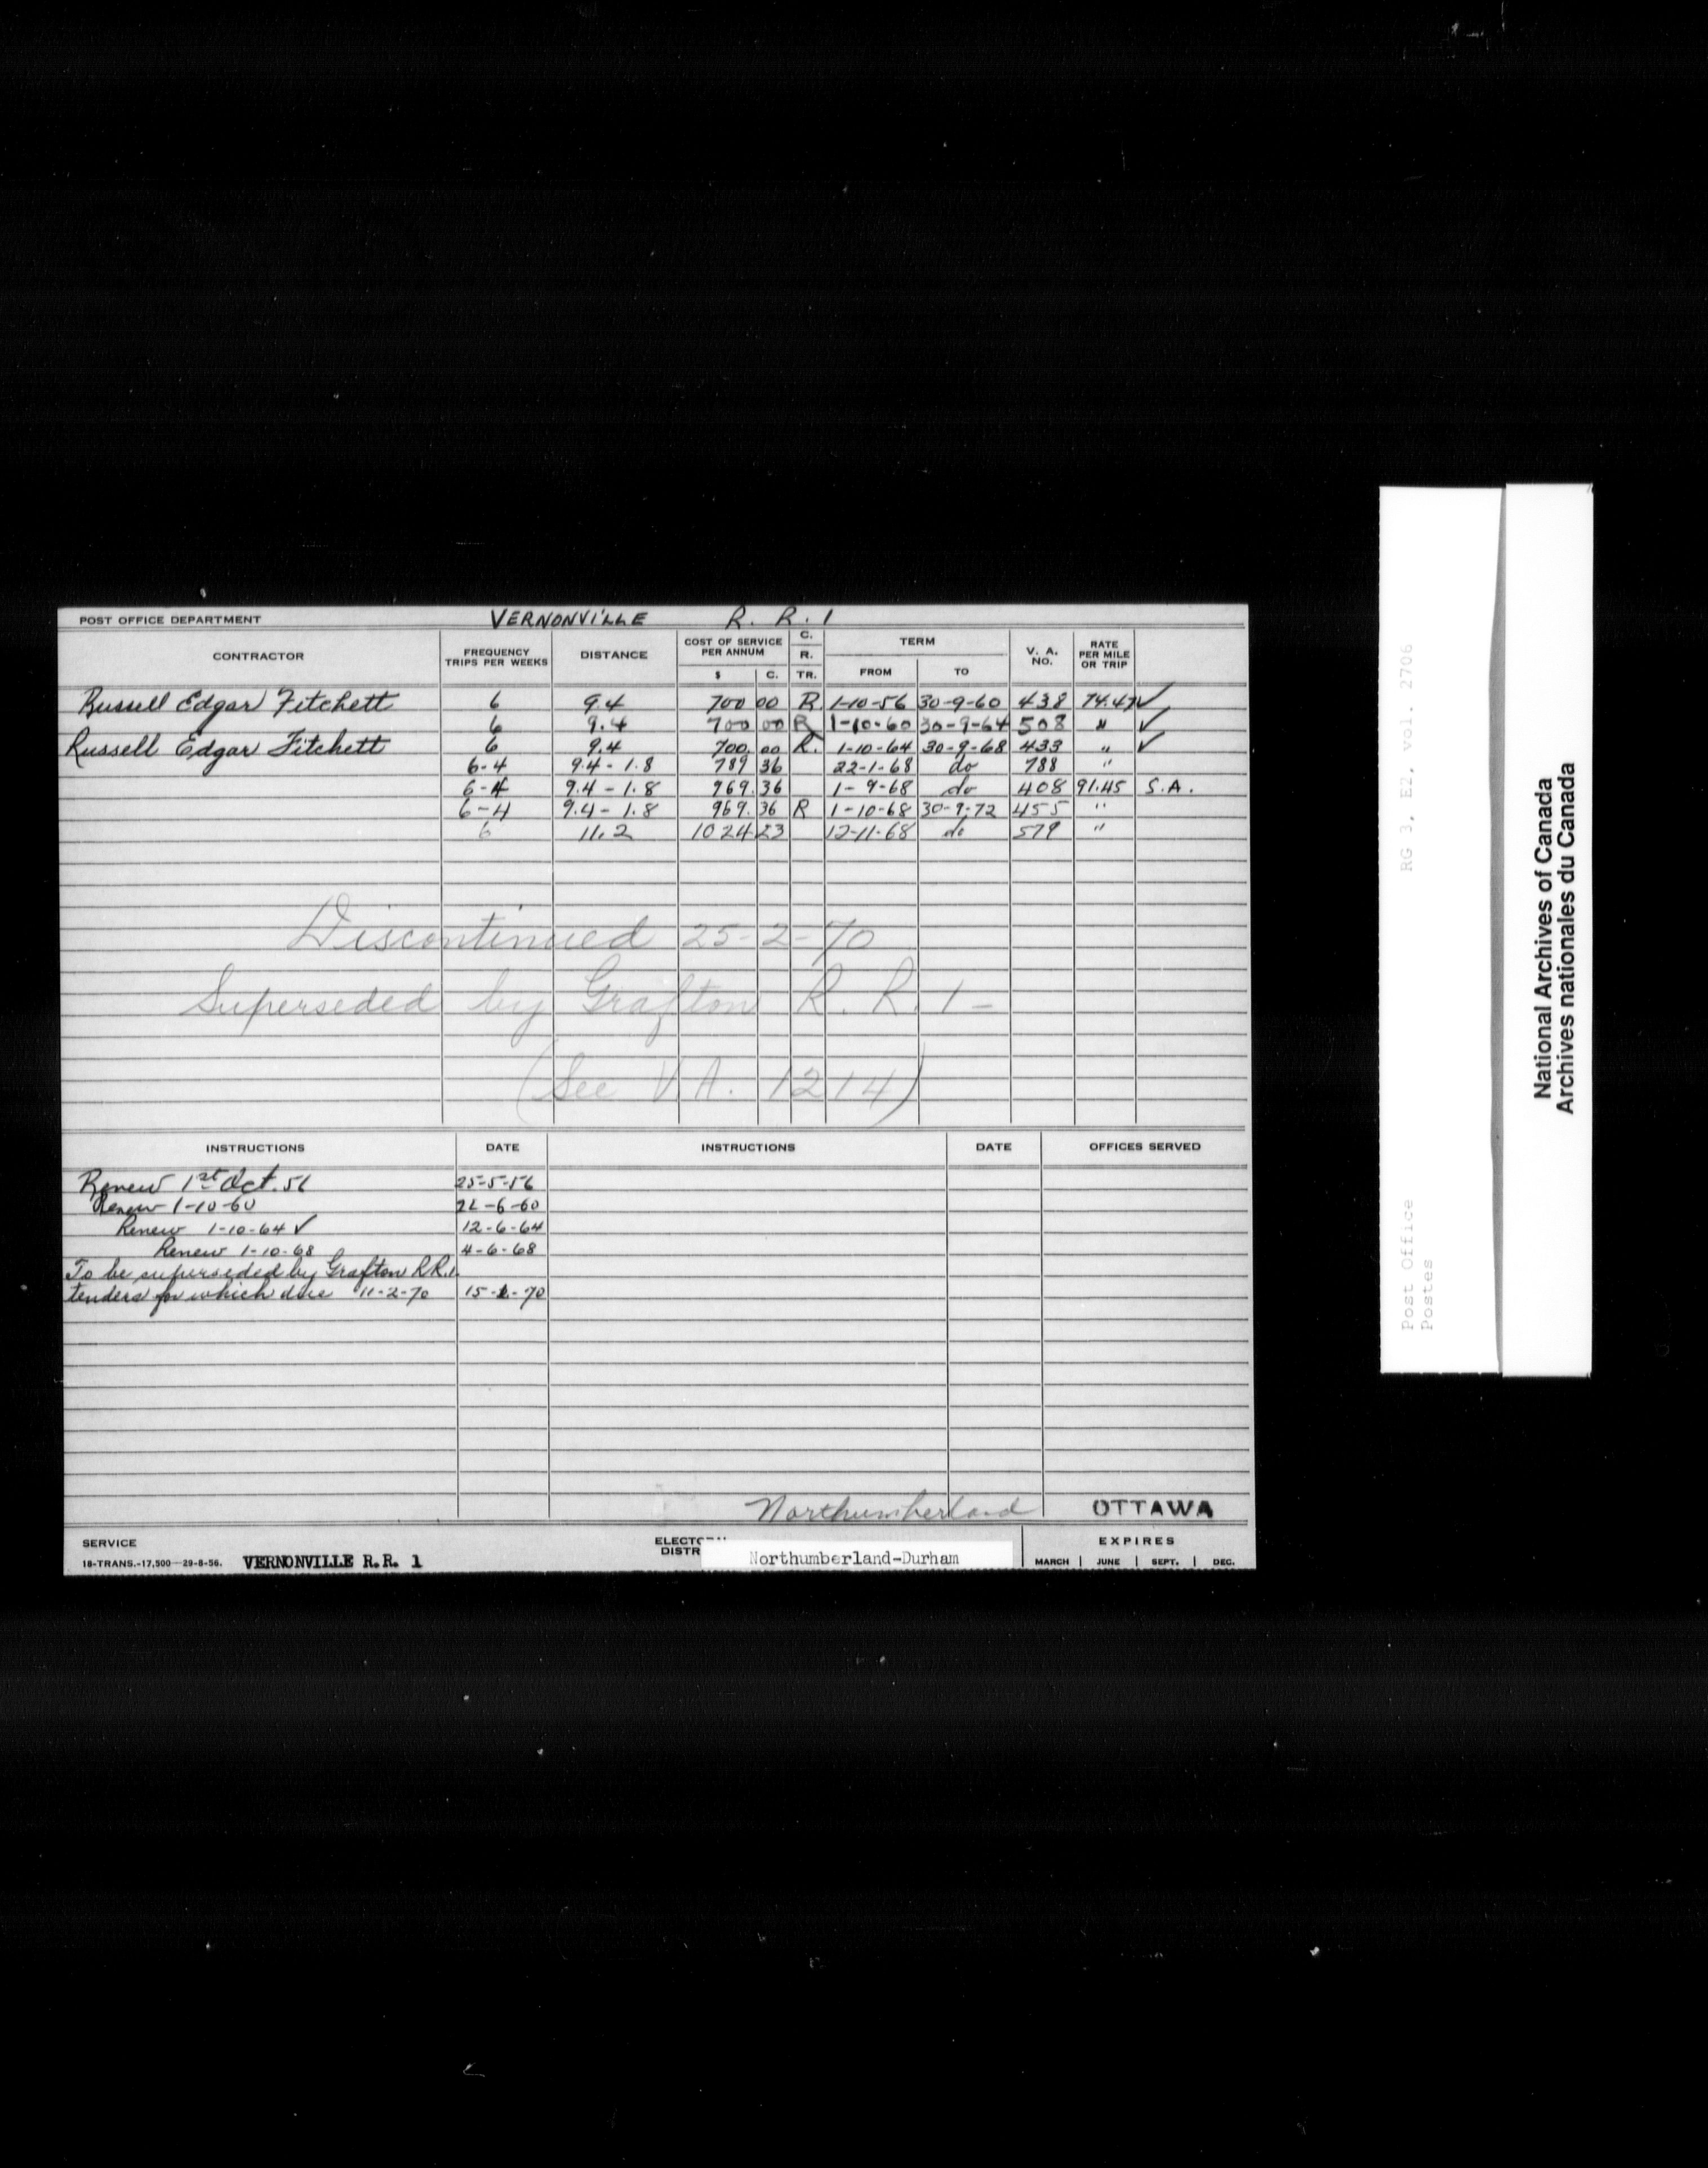 POST OFFICE DEPARTMENT VERNONVILLE R. R. 1
CONTRACTOR FREQUENCY TRIPS PER WEEKS DISTANCE COST OF SERVICE PER ANNUM $ C. C. R. TR. TERM FROM TO V. A. NO. RATE PER MILE OR TRIP
Russell Edgar Fitchett 6 9.4 700 00 R. 1-10-56 30-9-60 438 74.47 ✓
6 9.4 700 00 R 1-10-60 30-9-64 508 " ✓
Russell Edgar Fitchett 6 9.4 700. 00 R. 1-10-64 30-9-68 433 " ✓
6-4 9.4 - 1.8 789 36 22-1-68 do 788 "
6-4 9.4 - 1.8 969. 36 1-9-68 do 408 91.45 S.A.
6-4 9.4 - 1.8 969. 36 R 1-10-68 30-9-72 455 "
6 11.2 1024 23 12-11-68 do 579 "
Discontinued 25-2-70
Superseded by Grafton R. R. 1 -
(See V A. 1214)
INSTRUCTIONS DATE INSTRUCTIONS DATE OFFICES SERVED
Renew 1st Oct. 56 25-5-56
Renew 1-10-60 -6-60
Renew 1-10-64 ✓ 12-6-64
Renew 1-10-68 4-6-68
To be superseded by Grafton R.R.1.
tenders for which due 11-2-70 15- -70
Northumberland OTTAWA
SERVICE
18-TRANS.-17,500-29-8-56. VERNONVILLE R.R. 1
ELECTO
DISTR
Northumberland-Durham
EXPIRES
MARCH JUNE SEPT. DEC.
RG 3, E2, vol. 2706
Post Office
Postes
National Archives of Canada
Archives nationales du Canada